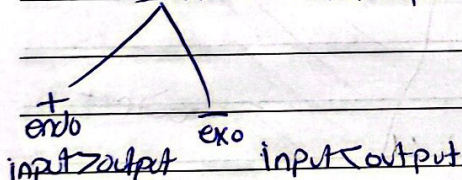 + −
endo exo
input>output input<output